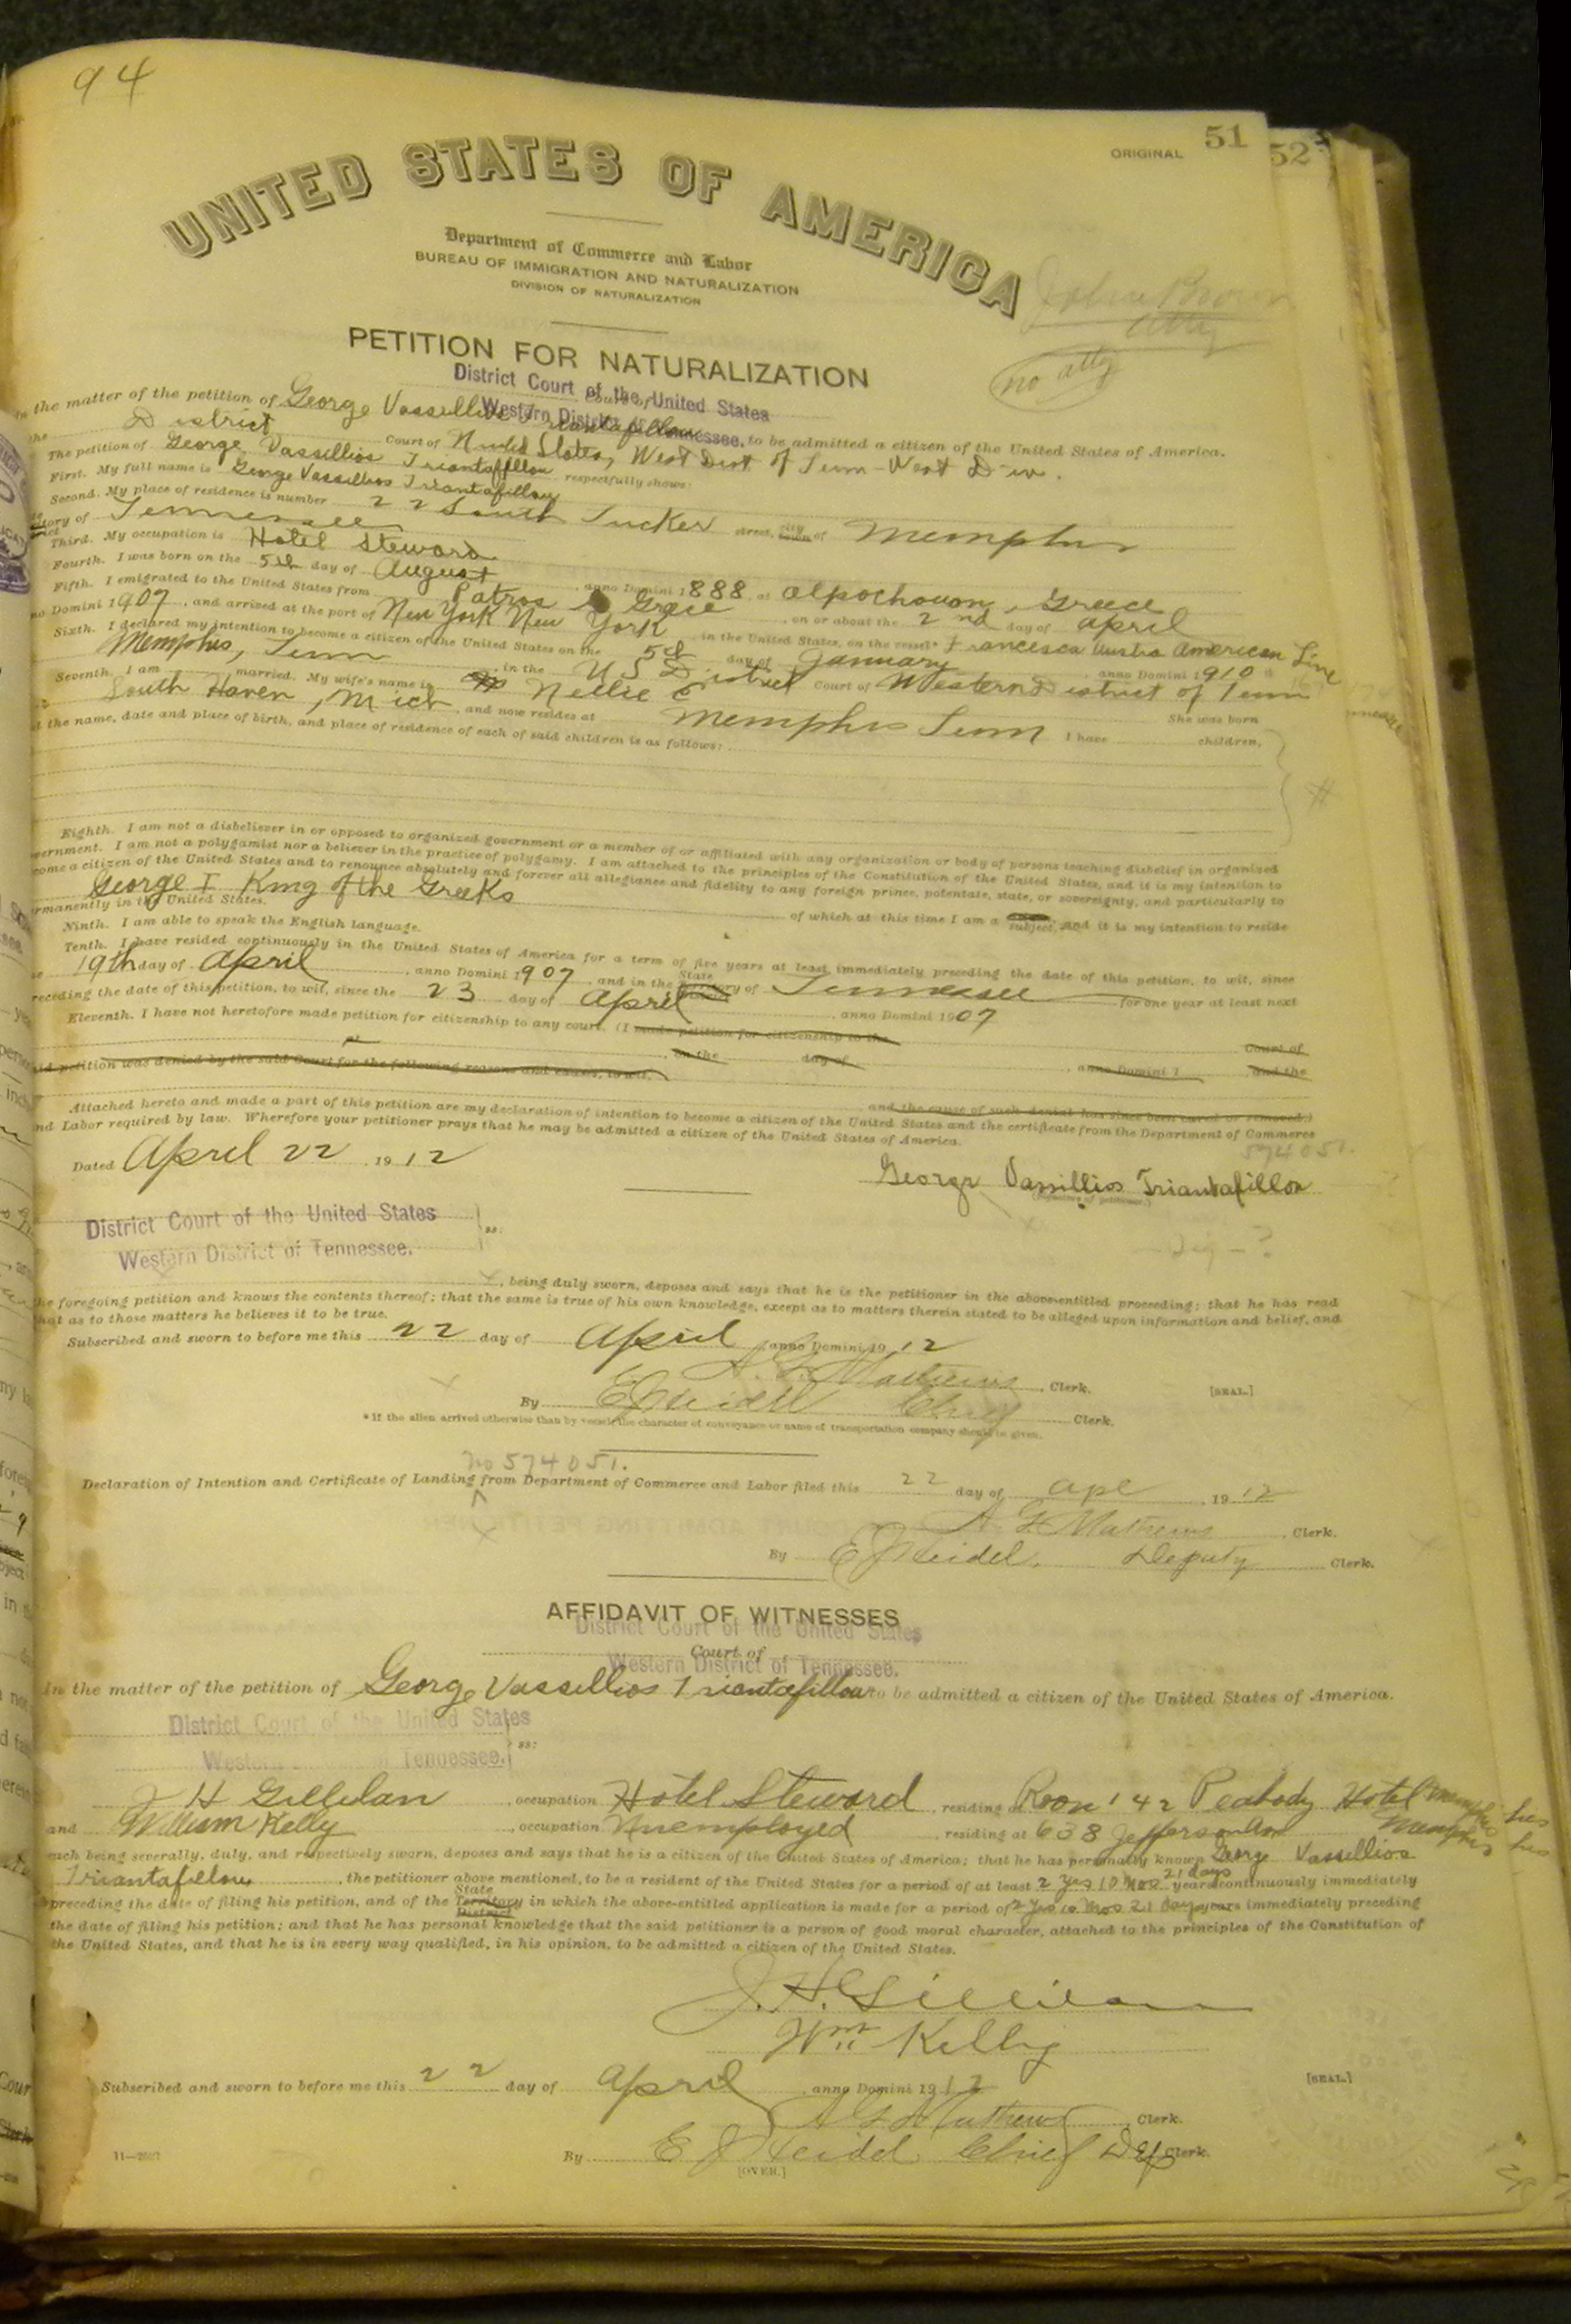 94
ORIGINAL 51
52
UNITED STATES OF AMERICA
Department of Commerce and Labor
BUREAU OF IMMIGRATION AND NATURALIZATION
DIVISION OF NATURALIZATION
John Brown
atty
no atty
PETITION FOR NATURALIZATION
District Court of the United States
Court of
Western District of Tennessee.
In the matter of the petition of George Vassillios Triantafillou to be admitted a citizen of the United States of America.
the District Court of United States, West Dist of Tenn - West Div.
The petition of George Vassillios Triantafillou respectfully shows:
First. My full name is George Vassillios Triantafillou
Second. My place of residence is number 22 South Tucker street, city of Memphis
tory of Tennessee
Third. My occupation is Hotel Steward
Fourth. I was born on the 5th day of August, anno Domini 1888, at Alpochouon, Greece
Fifth. I emigrated to the United States from Patros Grece, on or about the 2nd day of April
no Domini 1907, and arrived at the port of New York New York, in the United States, on the vessel* Francesca Austro American Line
Sixth. I declared my intention to become a citizen of the United States on the 5th day of January, anno Domini 1910
Memphis, Tenn, in the U S District Court of Western District of Tenn
Seventh. I am married. My wife's name is Nellie E She was born
South Haven, Mich, and now resides at Memphis Tenn I have children,
d the name, date and place of birth, and place of residence of each of said children is as follows:
Eighth. I am not a disbeliever in or opposed to organized government or a member of or affiliated with any organization or body of persons teaching disbelief in organized
vernment. I am not a polygamist nor a believer in the practice of polygamy. I am attached to the principles of the Constitution of the United States, and it is my intention to
come a citizen of the United States and to renounce absolutely and forever all allegiance and fidelity to any foreign prince, potentate, state, or sovereignty, and particularly to
George I King of the Greeks of which at this time I am a subject, and it is my intention to reside
rmanently in the United States.
Ninth. I am able to speak the English language.
Tenth. I have resided continuously in the United States of America for a term of five years at least immediately preceding the date of this petition, to wit, since
19th day of April, anno Domini 1907, and in the State Territory of Tennessee for one year at least next
receding the date of this petition, to wit, since the 23 day of April, anno Domini 1907
Eleventh. I have not heretofore made petition for citizenship to any court. (I made petition for citizenship to the Court of
at on the day of , anno Domini 1 and the
id petition was denied by the said Court for the following reasons and causes, to wit,
and the cause of such denial has since been cured or removed.)
Attached hereto and made a part of this petition are my declaration of intention to become a citizen of the United States and the certificate from the Department of Commerce
nd Labor required by law. Wherefore your petitioner prays that he may be admitted a citizen of the United States of America.
574051.
Dated April 22, 1912
George Vassillios Triantafillou
(Signature of petitioner.)
District Court of the United States
Western District of Tennessee. ss:
, being duly sworn, deposes and says that he is the petitioner in the above-entitled proceeding; that he has read
he foregoing petition and knows the contents thereof; that the same is true of his own knowledge, except as to matters therein stated to be alleged upon information and belief, and
hat as to those matters he believes it to be true.
Subscribed and sworn to before me this 22 day of April, anno Domini 1912
A. G. Mathews, Clerk. [SEAL.]
By E J Heidel Chief Clerk.
* If the alien arrived otherwise than by vessel, the character of conveyance or name of transportation company should be given.
no 574051.
Declaration of Intention and Certificate of Landing from Department of Commerce and Labor filed this 22 day of Apl, 1912
A G Mathews, Clerk.
By E J Heidel, Deputy Clerk.
AFFIDAVIT OF WITNESSES
District Court of the United States
Court of
Western District of Tennessee.
In the matter of the petition of George Vassillios Triantafillou to be admitted a citizen of the United States of America.
District Court of the United States
ss:
Western District of Tennessee.
J H Gillilan, occupation Hotel Steward, residing at Room 142 Peabody Hotel Memphis
and William Kelly, occupation Unemployed, residing at 638 Jefferson Ave Memphis
each being severally, duly, and respectively sworn, deposes and says that he is a citizen of the United States of America; that he has personally known George Vassillios
Triantafillou, the petitioner above mentioned, to be a resident of the United States for a period of at least 2 yrs 10 mos 21 days years continuously immediately
preceding the date of filing his petition, and of the State Territory District in which the above-entitled application is made for a period of 2 yrs 10 mos 21 days years immediately preceding
the date of filing his petition; and that he has personal knowledge that the said petitioner is a person of good moral character, attached to the principles of the Constitution of
the United States, and that he is in every way qualified, in his opinion, to be admitted a citizen of the United States.
J. H. Gillilan
Wm Kelly
Subscribed and sworn to before me this 22 day of April, anno Domini 1912 [SEAL.]
A G Mathews, Clerk.
By E J Heidel Chief Dep Clerk.
[OVER.]